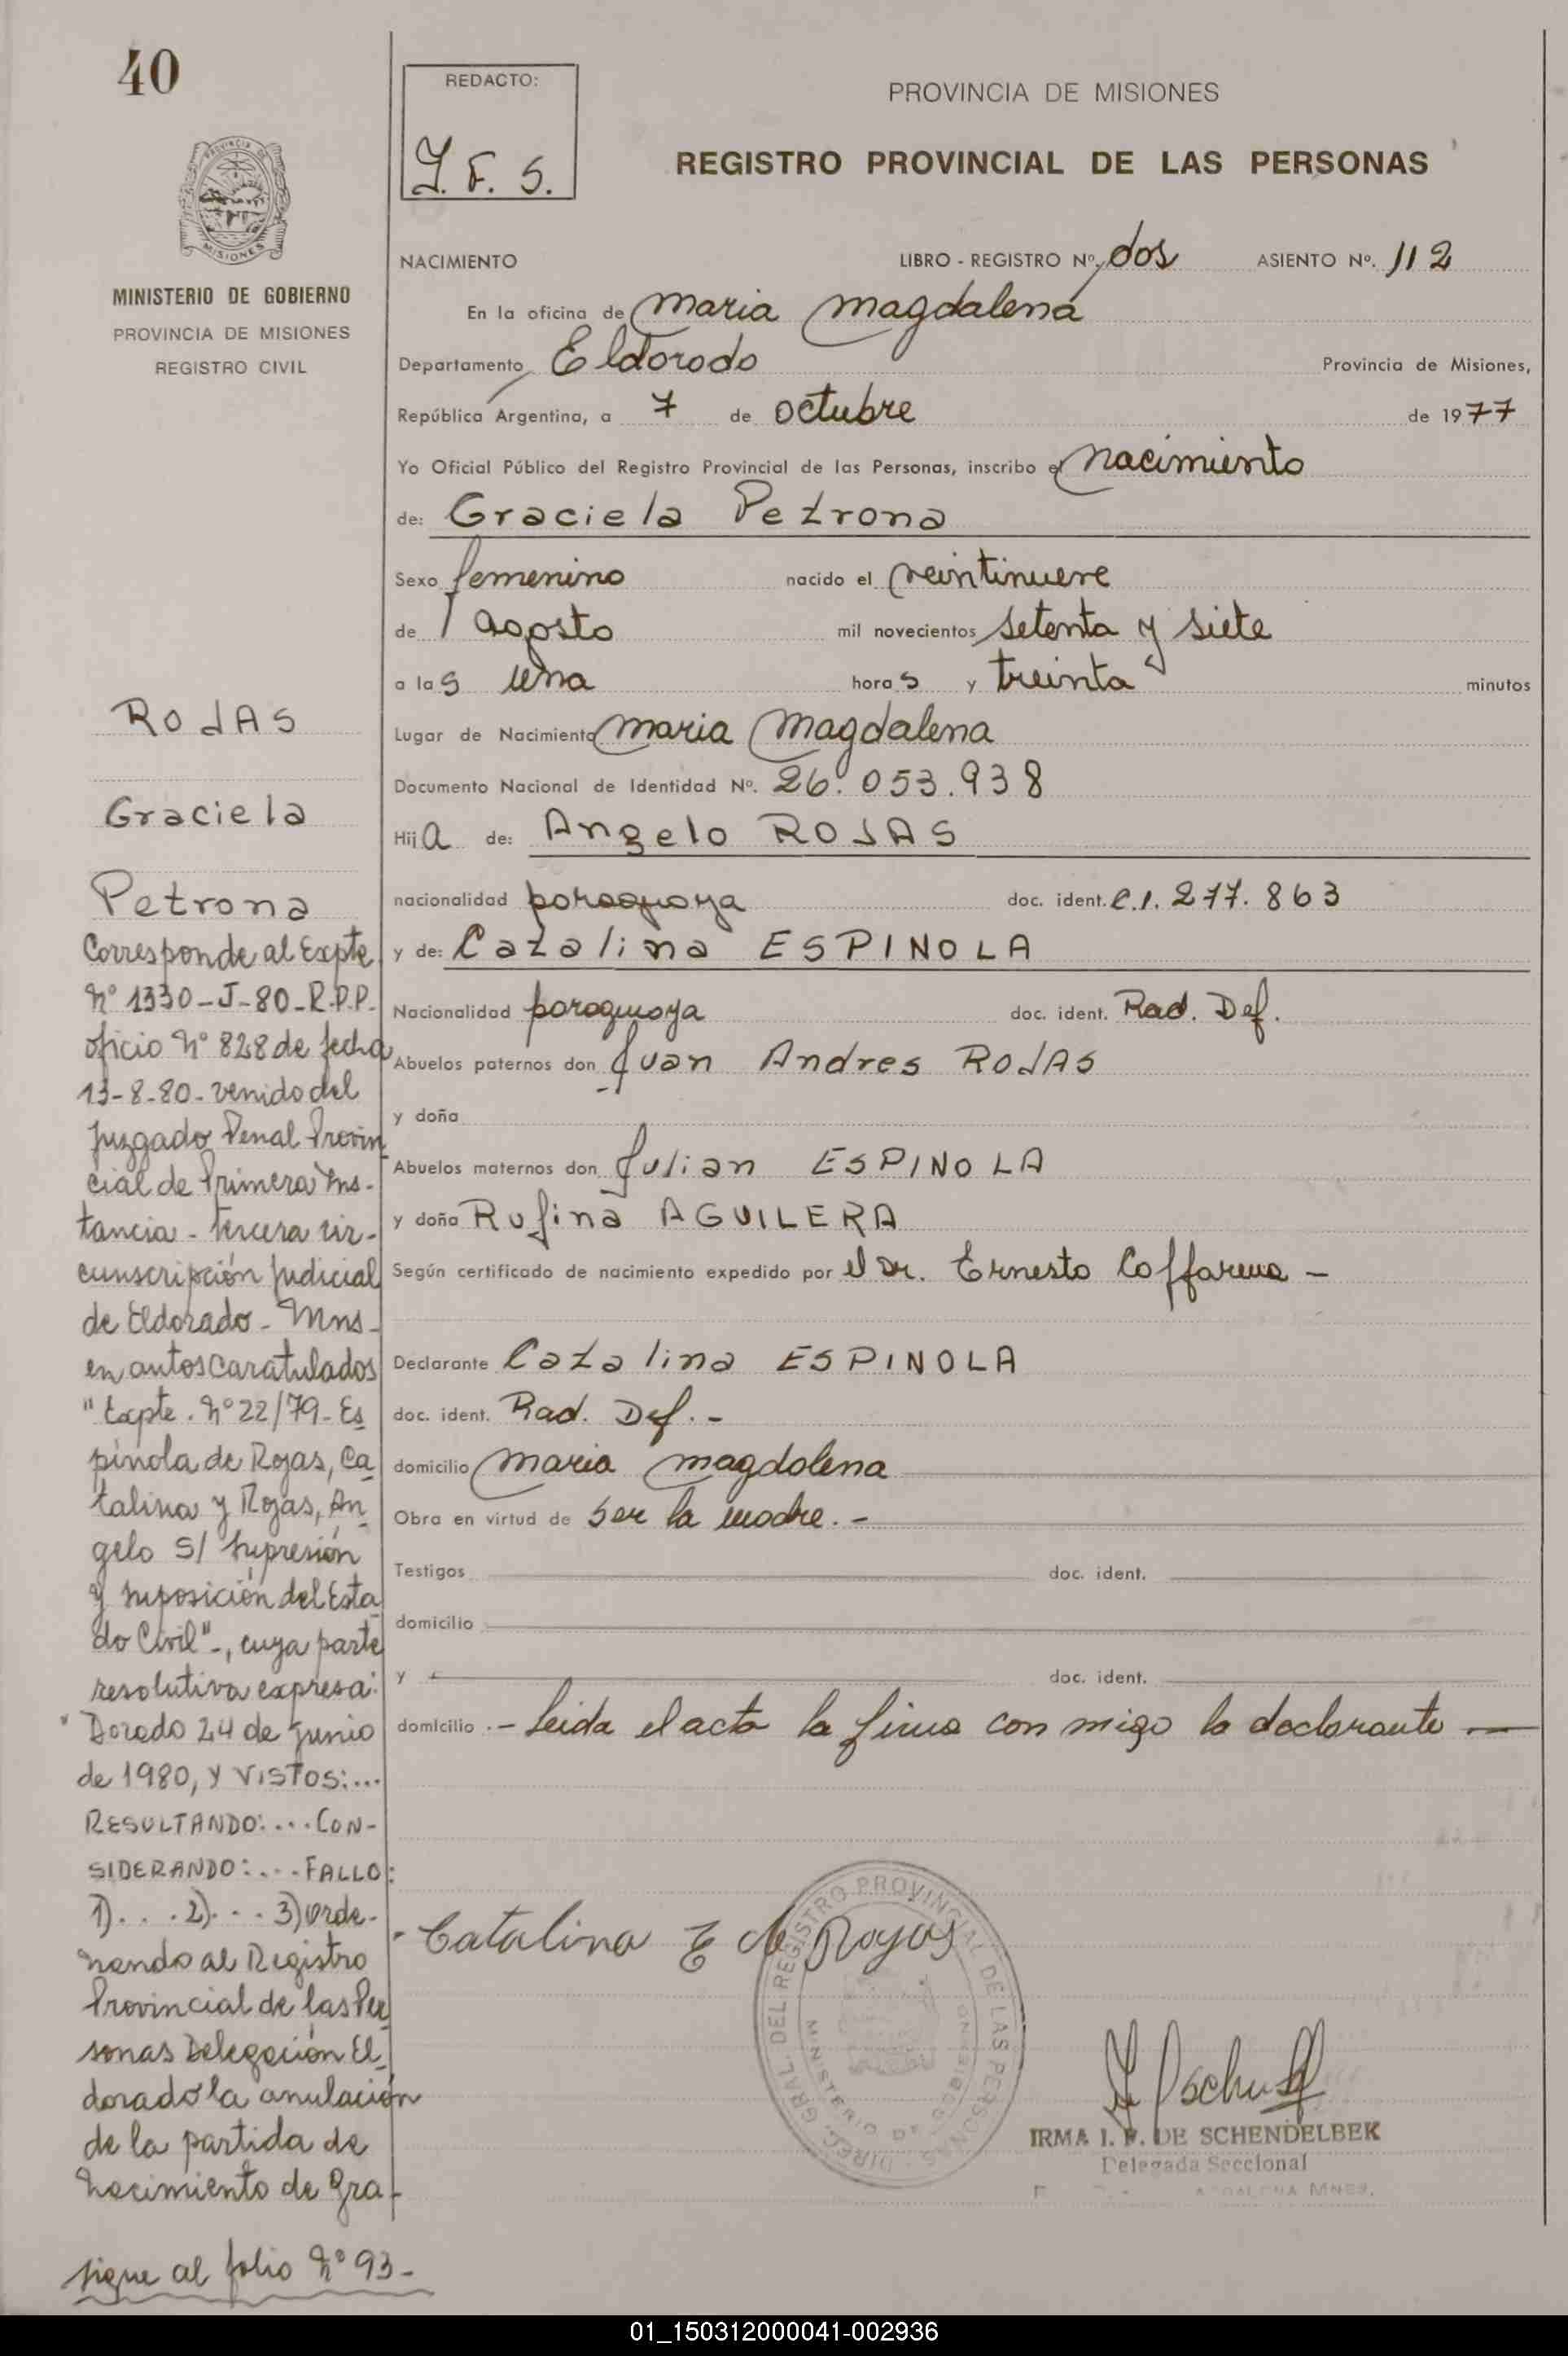 40
REDACTO:
J. F. S.
PROVINCIA DE MISIONES
REGISTRO PROVINCIAL DE LAS PERSONAS
PROVINCIA DE
MISIONES
MINISTERIO DE GOBIERNO
PROVINCIA DE MISIONES
REGISTRO CIVIL
NACIMIENTO LIBRO - REGISTRO Nº. dos ASIENTO Nº. 112
En la oficina de Maria Magdalena
Departamento Eldorado Provincia de Misiones,
República Argentina, a 7 de octubre de 1977
Yo Oficial Público del Registro Provincial de las Personas, inscribo el nacimiento
de: Graciela Petrona
Sexo femenino nacido el veintinueve
de agosto mil novecientos setenta y siete
a las una horas y treinta minutos
Lugar de Nacimiento Maria Magdalena
Documento Nacional de Identidad Nº. 26.053.938
Hija de: Angelo ROJAS
nacionalidad paraguaya doc. ident. C.I. 277.863
y de: Catalina ESPINOLA
Nacionalidad paraguaya doc. ident. Rad. Def.
Abuelos paternos don Juan Andres ROJAS
y doña
Abuelos maternos don Julian ESPINOLA
y doña Rufina AGUILERA
Según certificado de nacimiento expedido por el Dr. Ernesto -
Declarante Catalina ESPINOLA
doc. ident. Rad. Def. -
domicilio Maria Magdalena
Obra en virtud de ser la madre. -
Testigos doc. ident.
domicilio
y doc. ident.
domicilio . - Leida el acta la firma con migo la declarante —
Catalina E de Rojas
DIREC. GRAL. DEL REGISTRO PROVINCIAL DE LAS PERSONAS
MINISTERIO DE GOBIERNO
IRMA I. F. DE SCHENDELBEK
Delegada Seccional
MNES.
ROJAS
Graciela
Petrona
Corresponde al Expte
Nº 1330-J-80-R.P.P.
oficio Nº 828 de fecha
13-8-80- venido del
Juzgado Penal Provin
cial de Primera Ins-
tancia - tercera cir-
cunscripción Judicial
de Eldorado - Mns-
en autos caratulados
"Expte. Nº 22/79- Es
pinola de Rojas, Ca
talina y Rojas, An
gelo S/ Supresión
y suposición del Esta
do Civil"-, cuya parte
resolutiva expresa:
"Dorado 24 de Junio
de 1980, Y VISTOS:...
RESULTANDO:... CON-
SIDERANDO:... FALLO:
1)... 2)... 3) orde-
nando al Registro
Provincial de las Per
sonas Delegación El
dorado la anulación
de la partida de
nacimiento de Gra-
sigue al folio Nº 93-
01_150312000041-002936